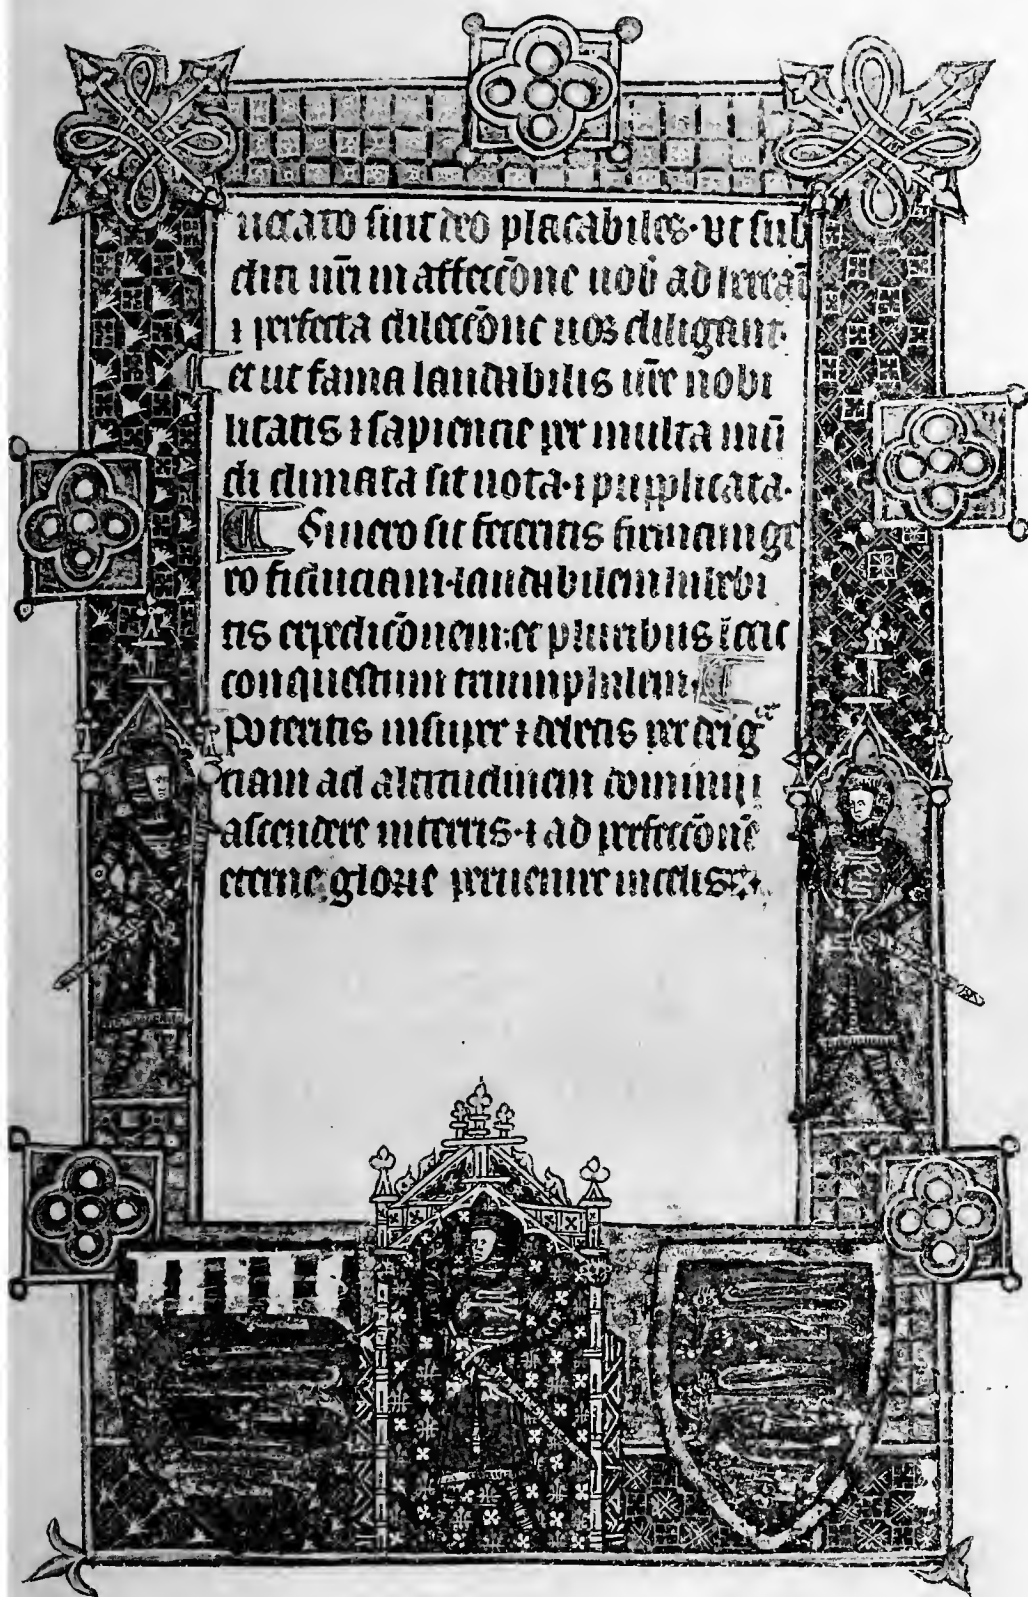 uccato sint deo placabiles· ut sub
diti nr̄i in affecc̄one uob̄
⁊ perfecta dilecc̄one uos diligant·
et ut fama laudabilis ur̄e nobi
litatis ⁊ sapiencie per multa mū
di climata sit nota· ⁊ pupplicata·
Sincero sit feceritis firmam ge
ro fiduciam· laudabilem
tis expedic̄onem: et pluribus
conquestum triumphalem·
Poteritis insuper ⁊ deb
ciam ad altitudinem dominii
ascendere in terris· ⁊ ad perfecc̄onē
eterne glorie peruenire in celis